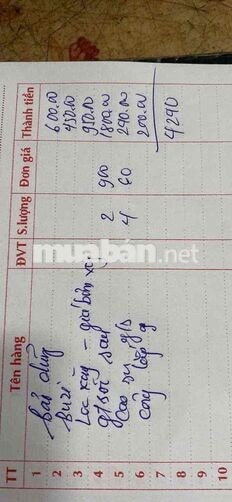 TT Tên hàng ĐVT S.lượng Đơn giá Thành tiền
1 bảo dưỡng 600.00
2 buzi 450.00
3 Lọc xăng - giá bơm xăng 950.00
4 gt sời say 2 900 1800.00
5 Cao su g/s 4 60 240.00
6 công lắp g 200.00
7 4290
8
9
10
muaban.net